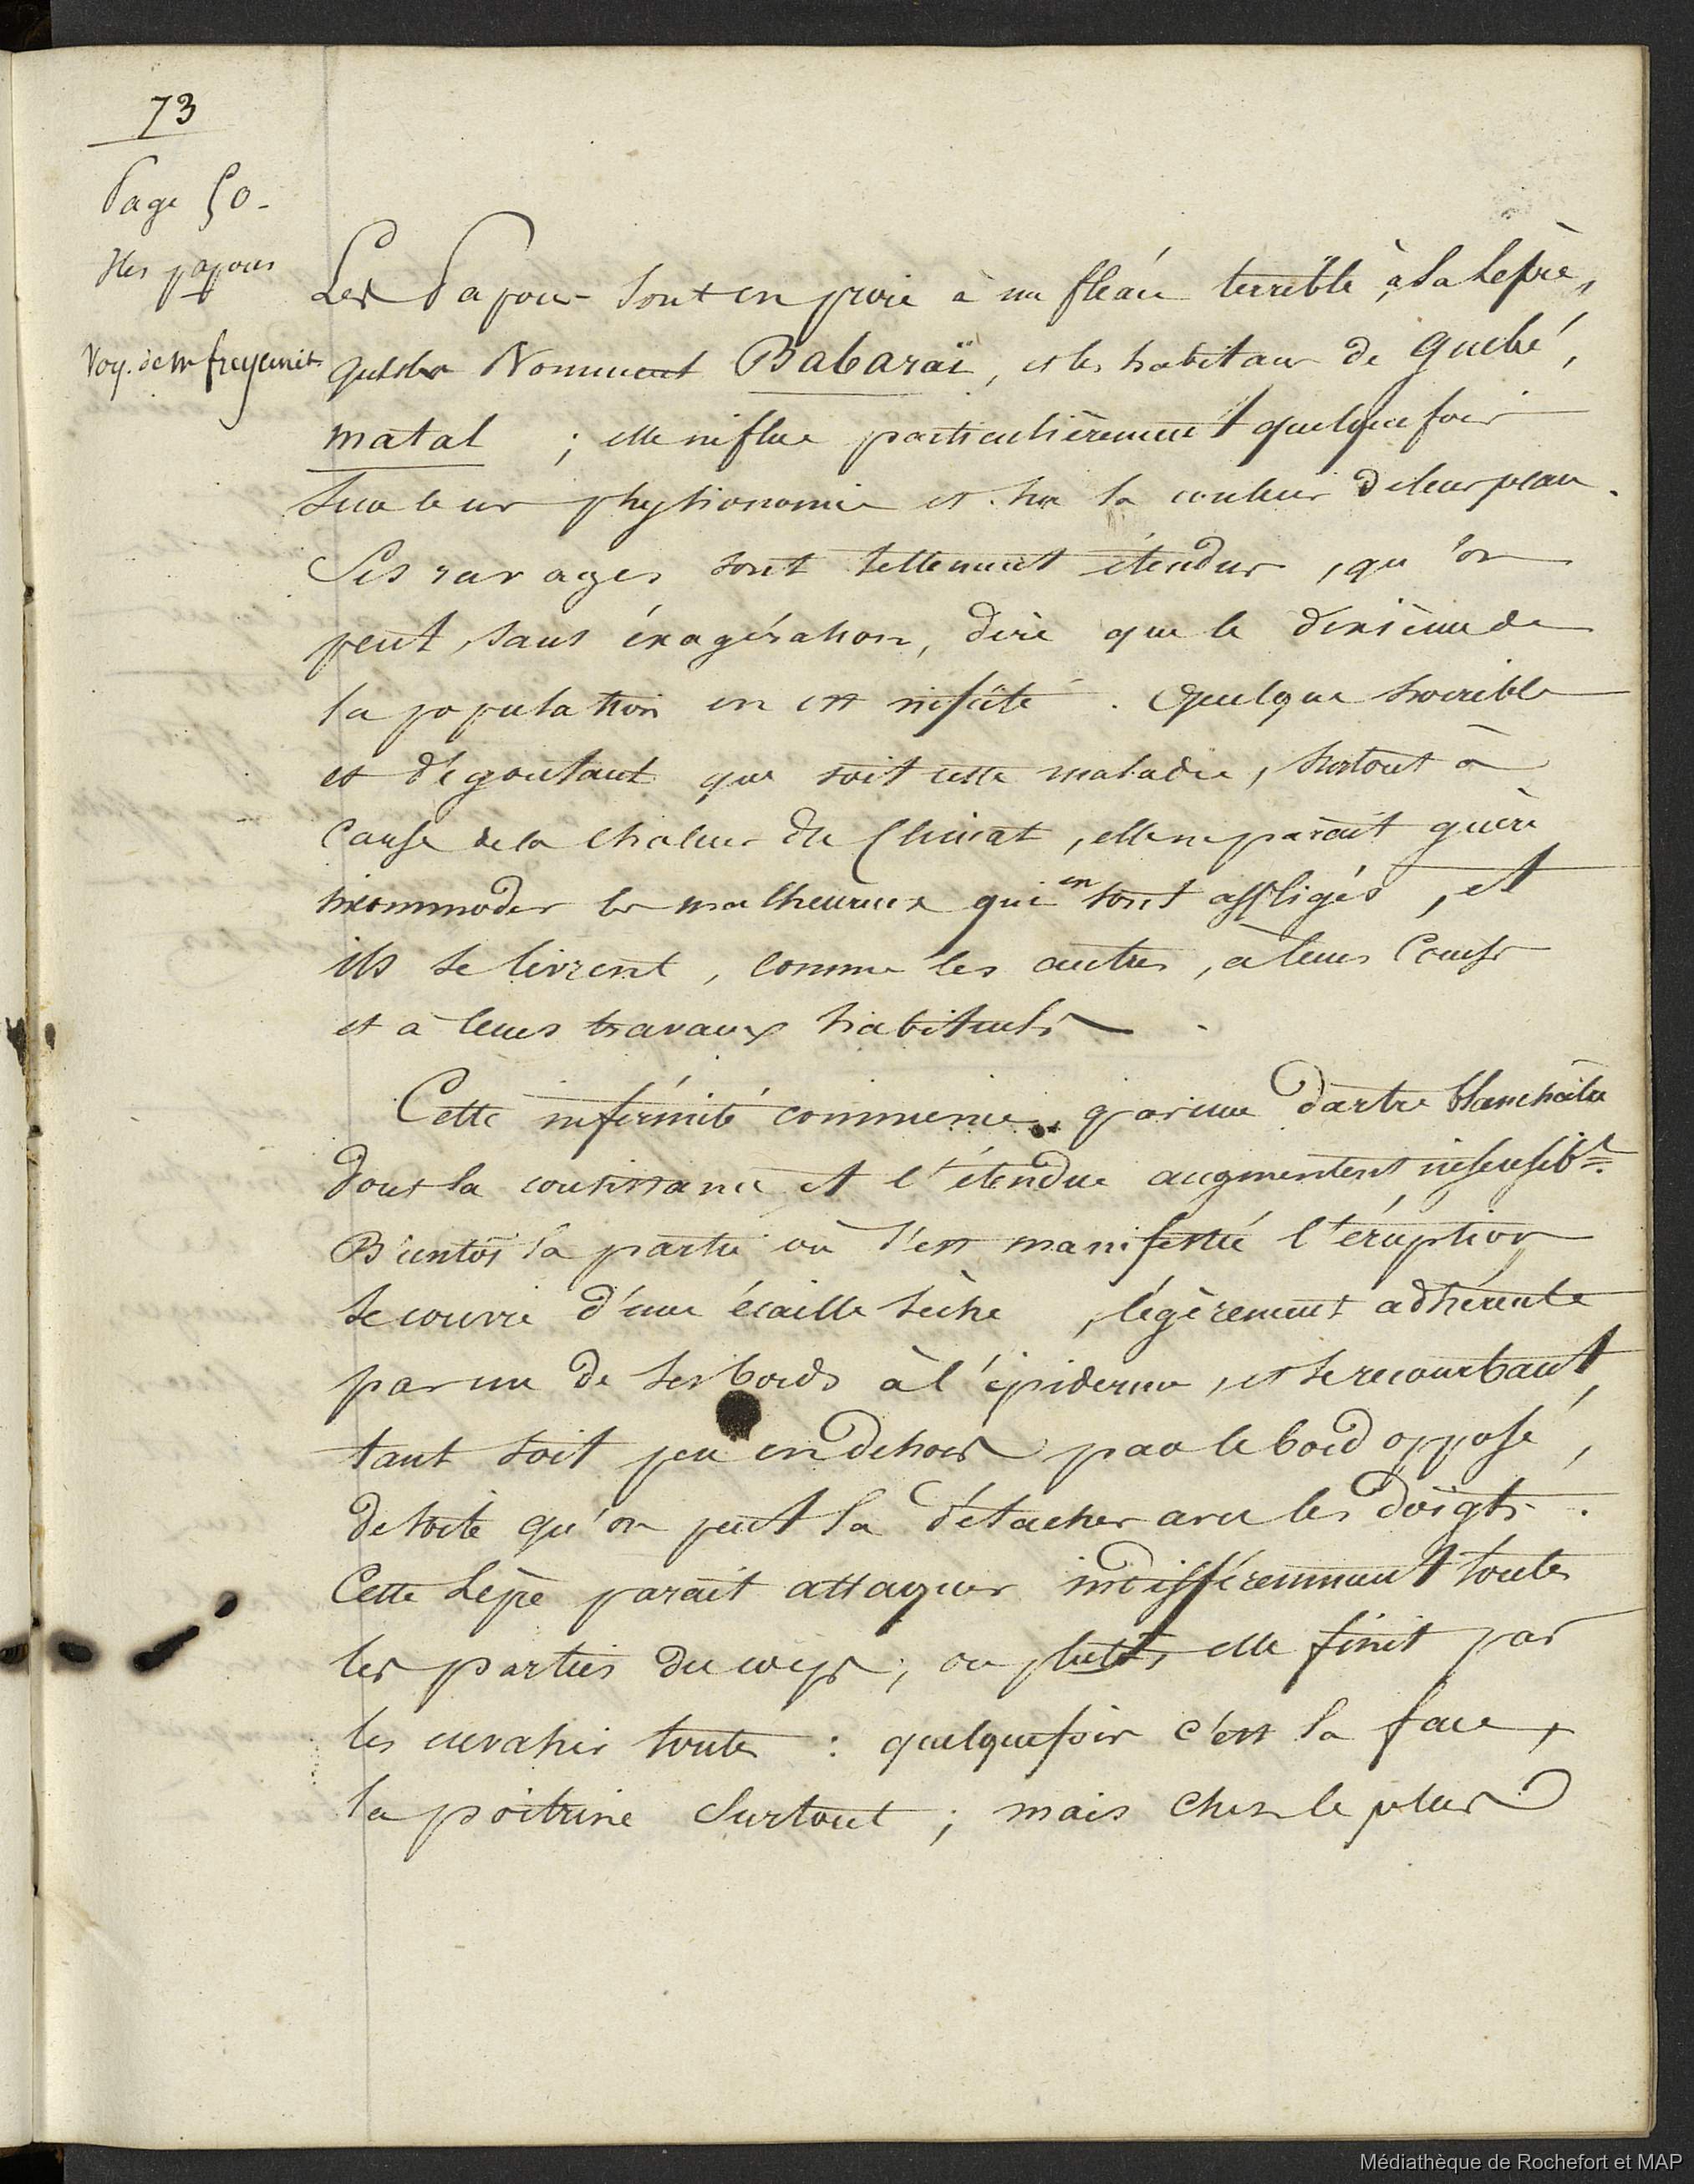 73
Page 50 -
Iles papous
Voy. de Mr freycinet
Les Papous sont en proie à un fléau terrible, à la lèpre,
qu'ils Nomment Babaraï, et les habitans de Guebé,
matal ; elle influe particulièrement quelquefois
sur leur physionomie et sur la couleur de leur peau.
Ses ravages sont tellement étendus, qu'on
peut, sans éxagération, dire que le dixième de
la population en est infecté. Quelque horrible
et dégoutant que soit cette maladie, surtout à
cause de la chaleur du Climat, elle ne parait guère
incommoder les malheureux qui en sont affligés, et
ils se livrent, comme les autres, à leurs courses
et à leurs travaux habituels.
Cette infirmité commence par une dartre blanchâtre
dont la consistance et l'étendue augmentent insensibt.
Bientôt la partie où s'est manifestée l'éruption
se couvre d'une écaille sèche, légèrement adhérente
par un de ses bords à l'épiderme, et se recourbant,
tant soit peu en dehors par le bord opposé,
de sorte qu'on peut la détacher avec les doigts.
Cette Lèpre parait attaquer indifféremment toutes
les parties du corps ; ou plutôt, elle finit par
les envahir toutes : quelquefois c'est la face,
la poitrine surtout ; mais chez le plus
Médiathèque de Rochefort et MAP